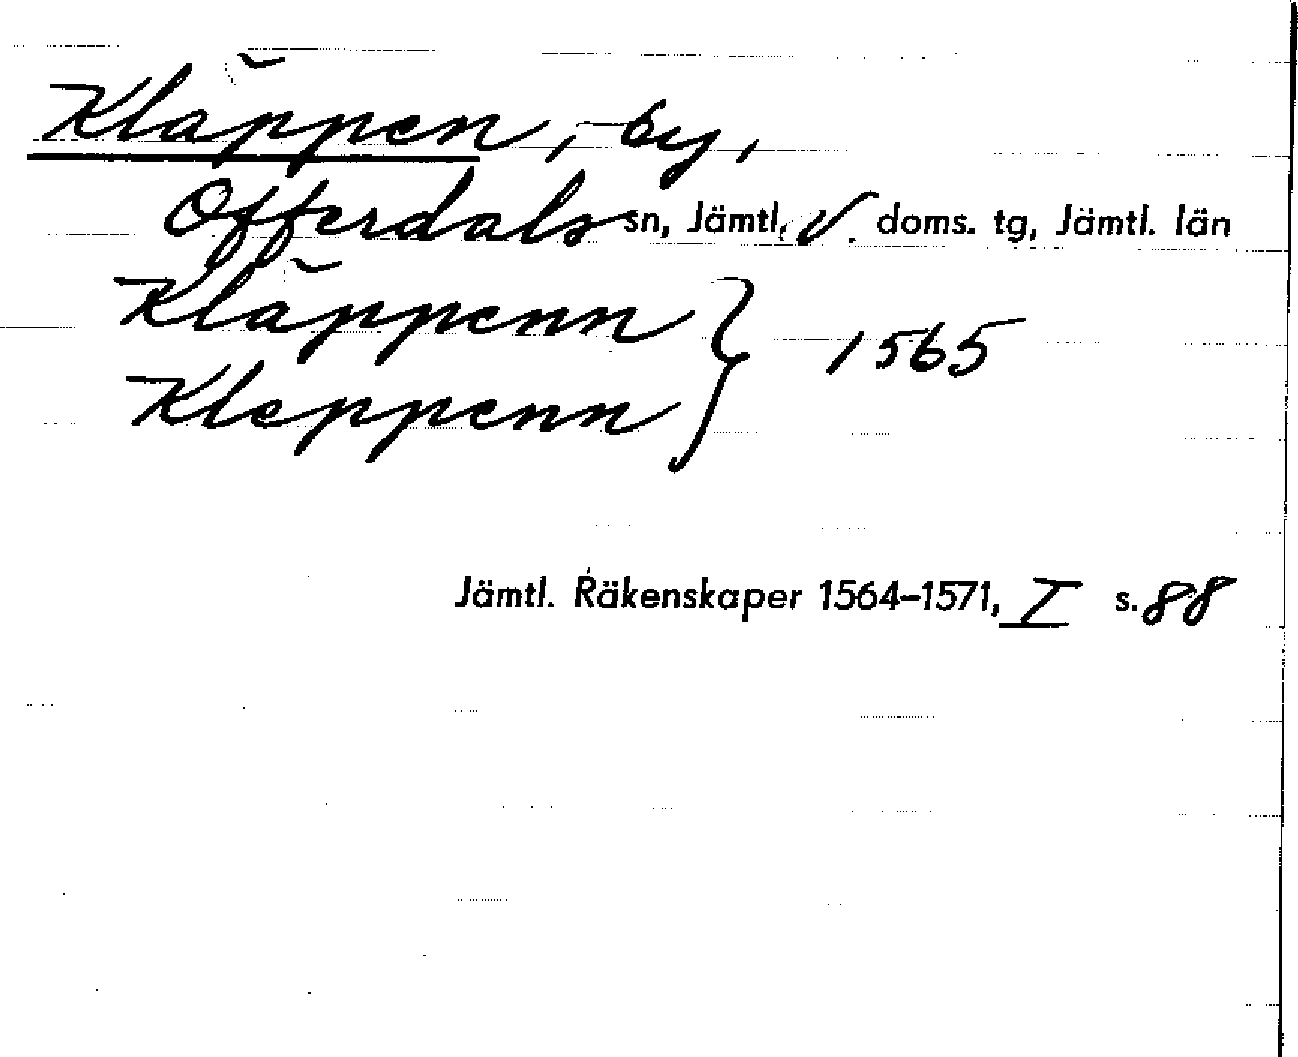 Kläppen, by,
Offerdals sn, Jämtl. V. doms. tg, Jämtl. län
Kläppenn
Kleppenn } 1565
Jämtl. Räkenskaper 1564–1571, I s. 88